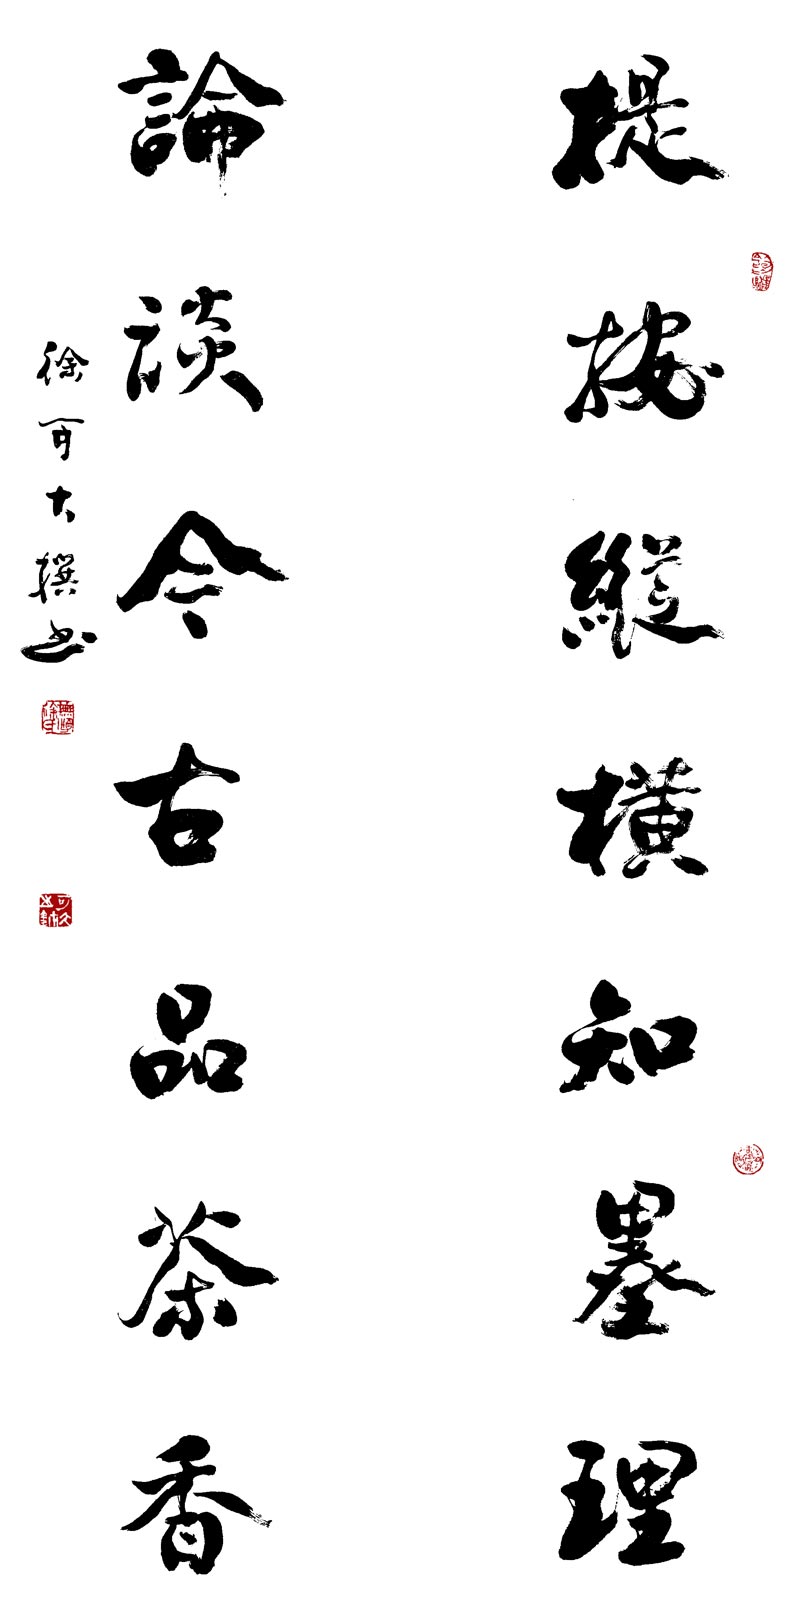 提按縱橫知墨理
論談今古品茶香
徐可大撰书